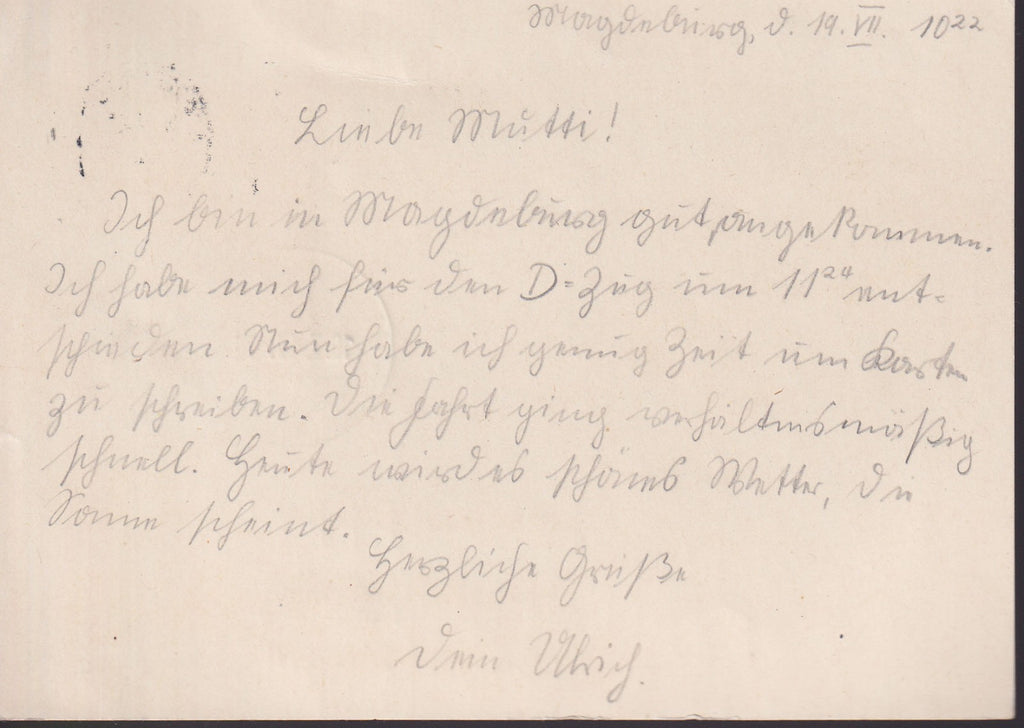 Magdeburg, d. 19. VII. 10²²
Liebe Mutti!
Ich bin in Magdeburg gut angekommen.
Ich habe mich für den D=Zug um 11²⁴ ent=
schieden. Nun habe ich genug Zeit um Karten
zu schreiben. Die Fahrt ging verhältnismäßig
schnell. Heute wird es schönes Wetter, die
Sonne scheint.
Herzliche Grüße
Dein Ulrich.